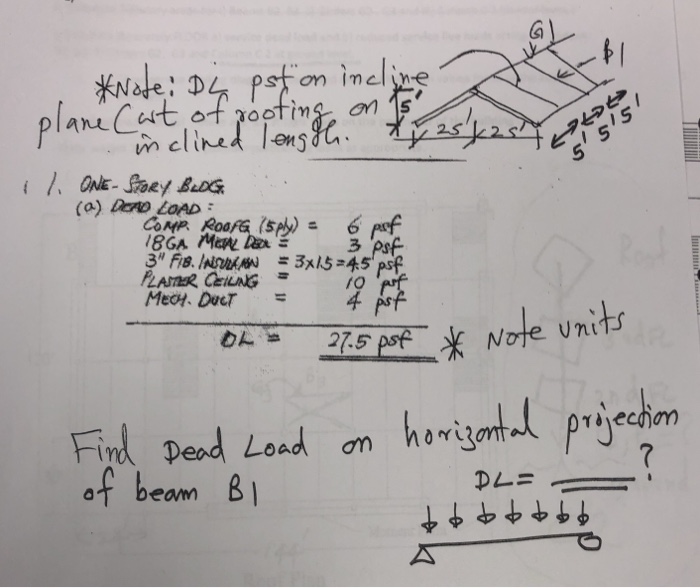 G1
B1
*Note: DL psf on incline
plane (wt of roofing on
inclined length.
15'
25' 25'
5' 5' 5'
1. ONE-STORY BLDG.
(a) DEAD LOAD:
COMP. ROOFG (5ply) = 6 psf
18GA METAL DECK = 3 psf
3" FIB. INSULATION = 3x1.5=4.5 psf
PLASTER CEILING = 10 psf
MECH. DUCT = 4 psf
DL = 27.5 psf * Note units
Find Dead Load on horizontal projection
of beam B1
DL = ?